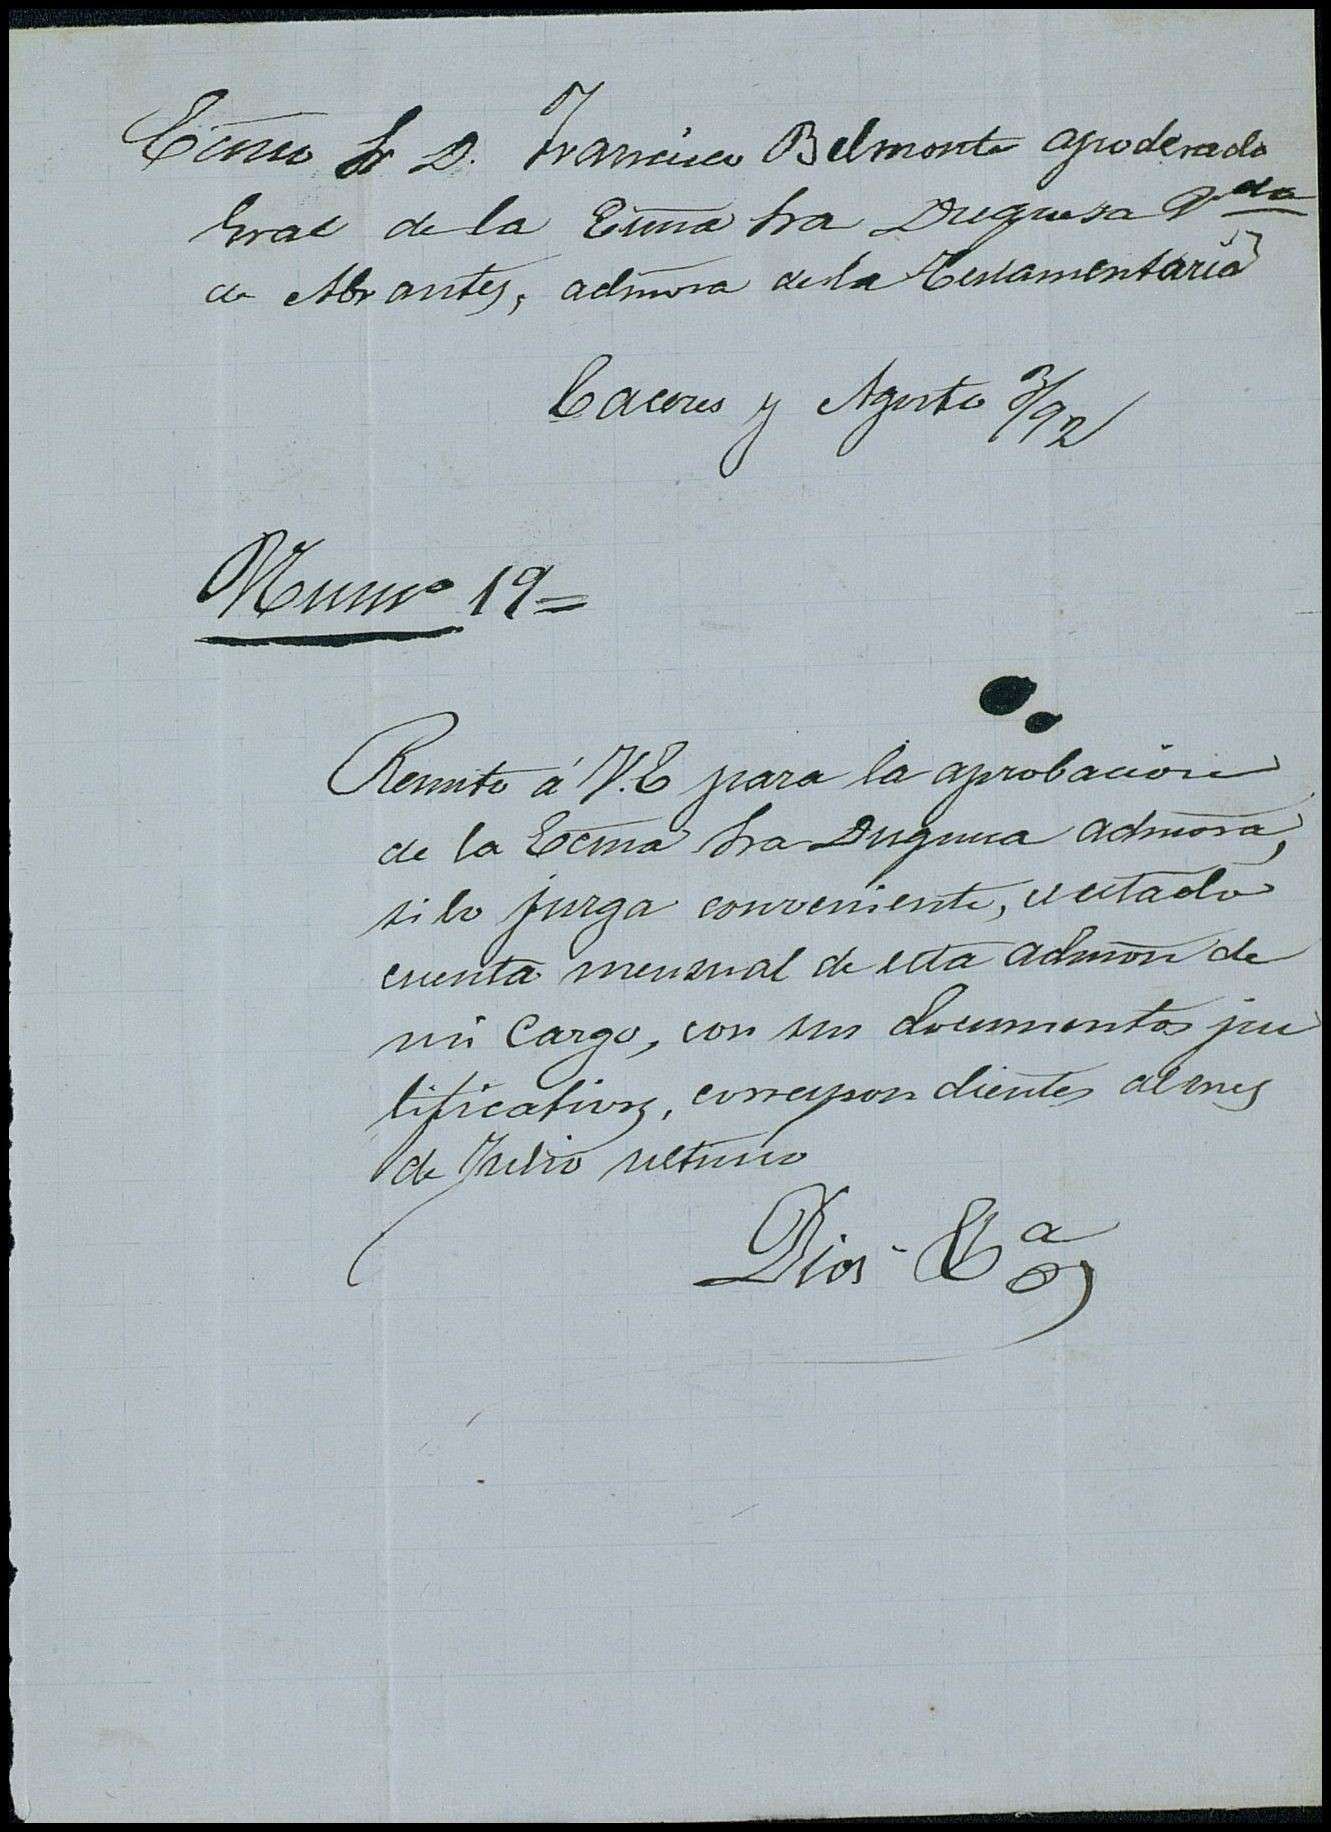 Ecmo Sr D. Francisco Belmonte apoderado
Gral de la Ecma Sra Duquesa Vda
de Abrantes, admora de la Testamentaria
Caceres y Agosto 3/92
Numo 19=
Remito á V.E para la aprobacion
de la Ecma Sra Duquesa admora,
si lo juzga conveniente, el estado
cuenta mensual de esta admon de
mi cargo, con sus documentos jus
tificativos, correspondientes al mes
de Julio ultimo
Dios Ea